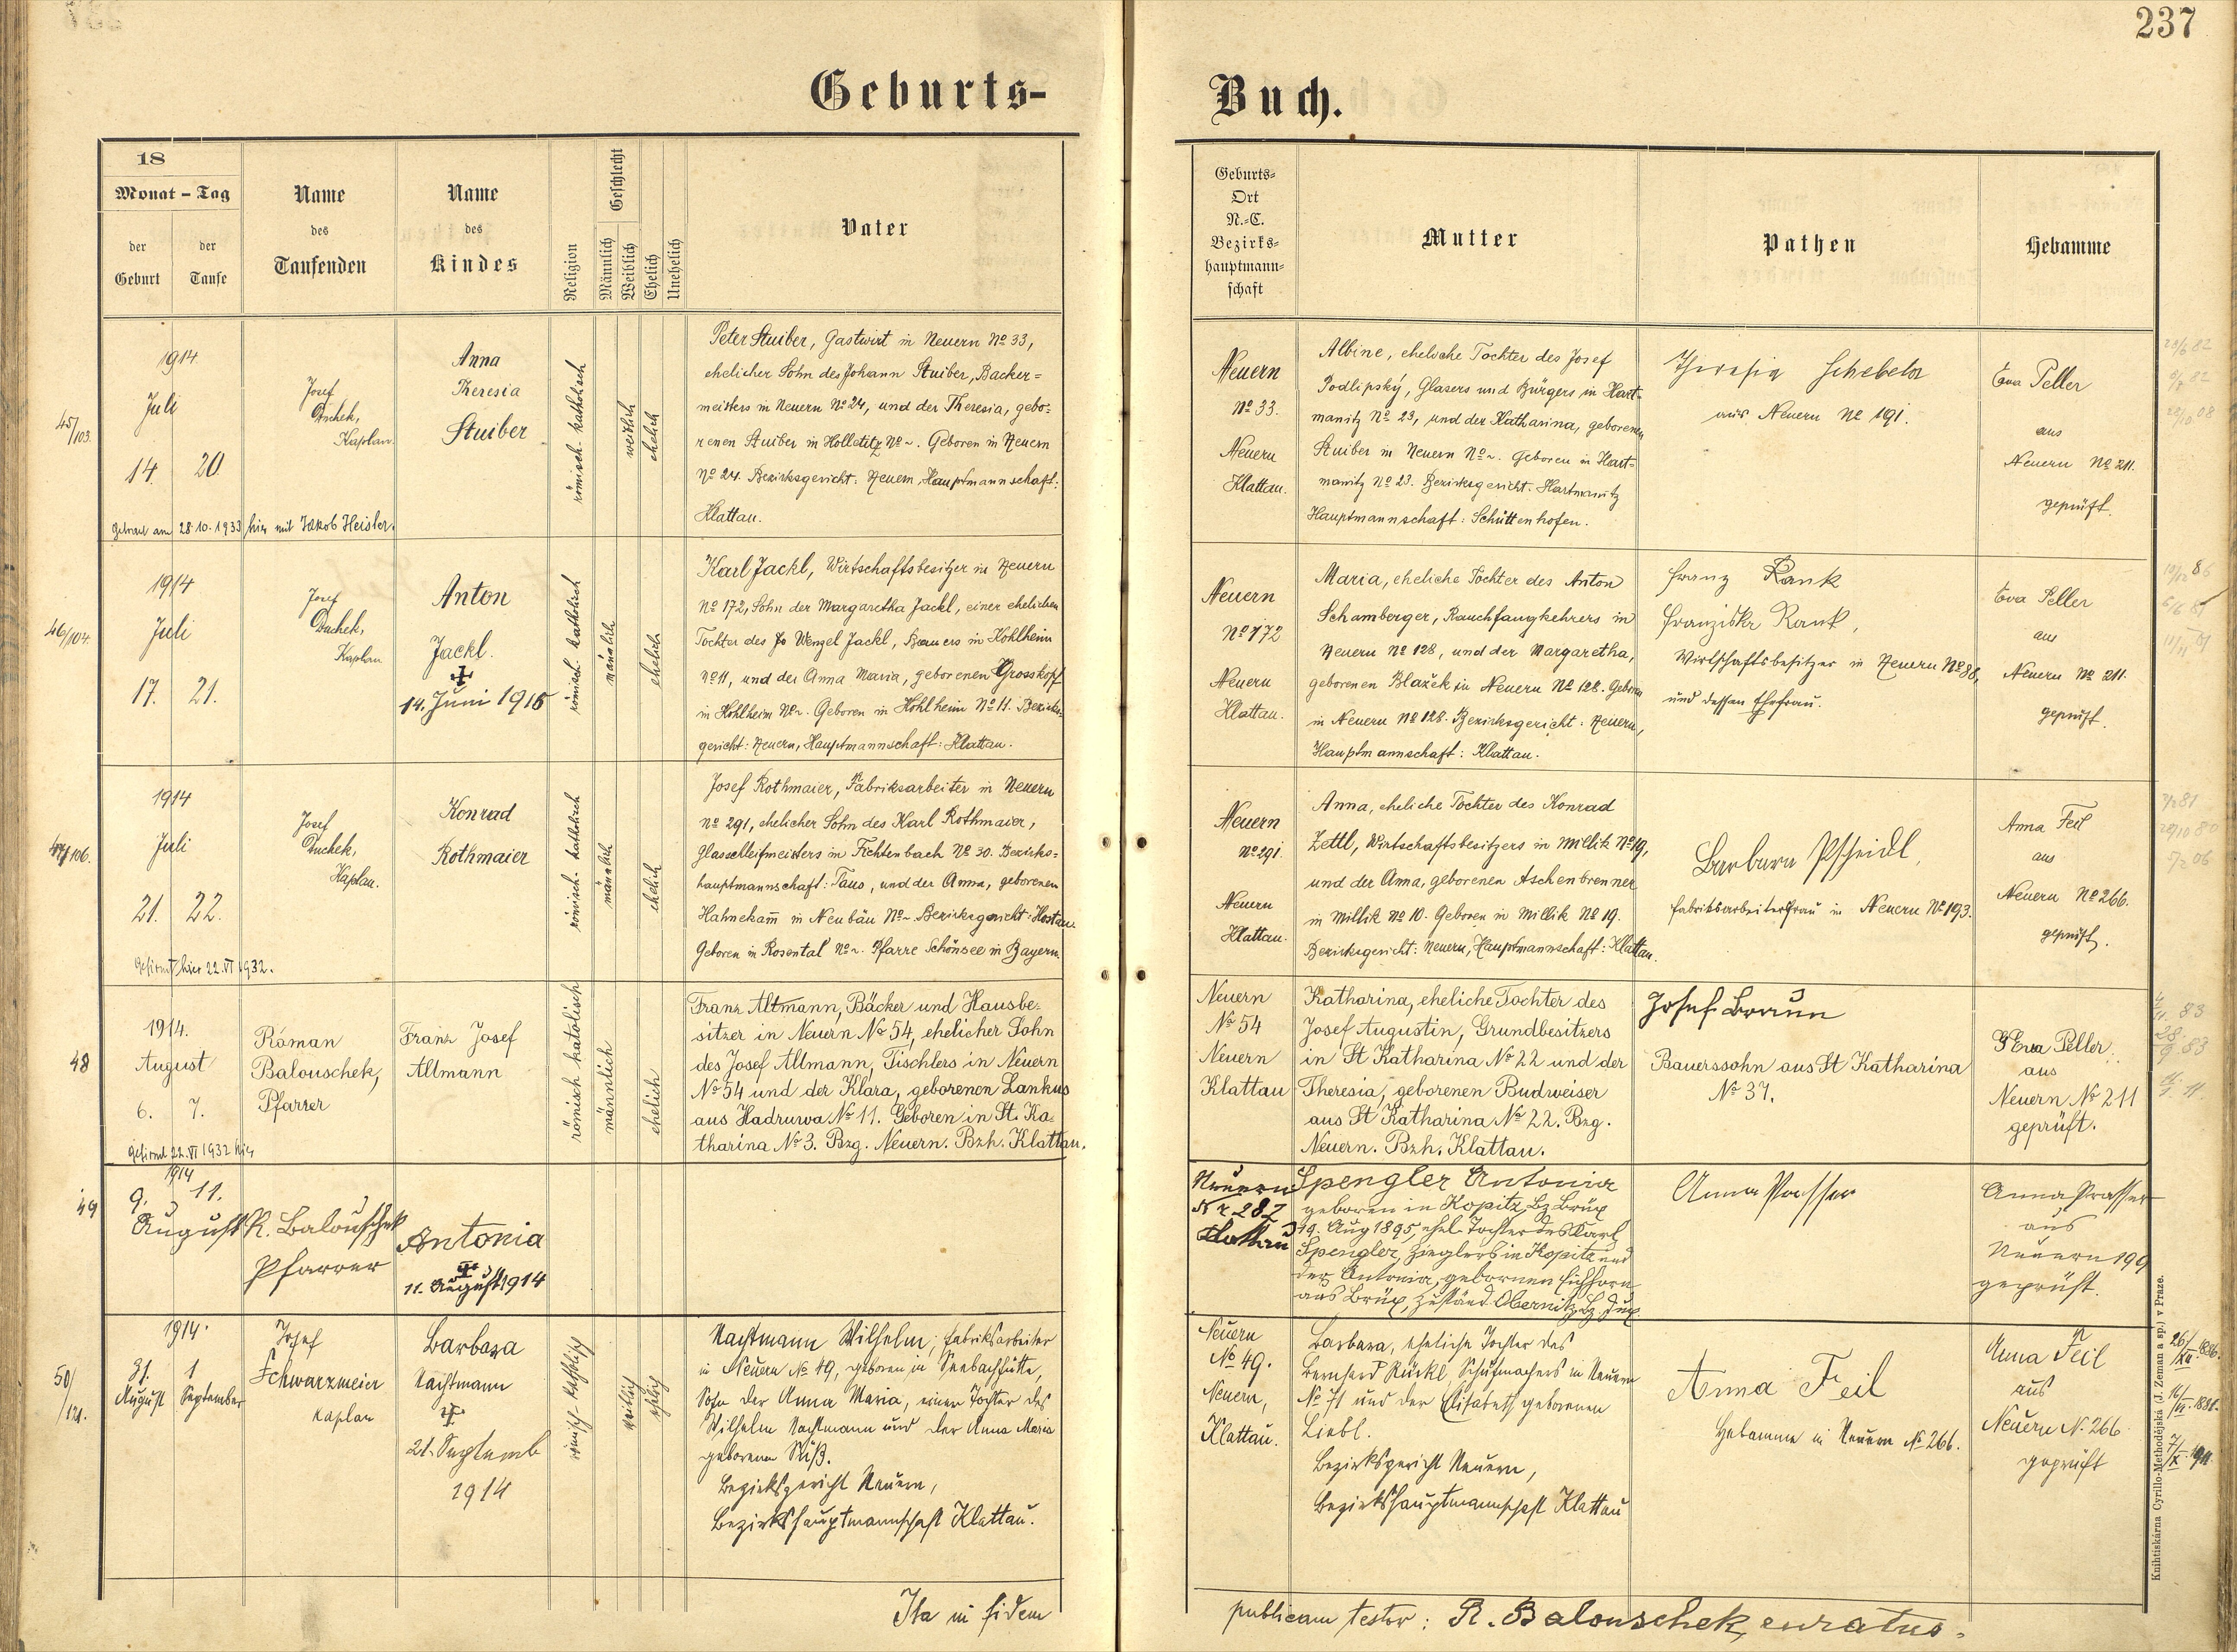 237
Geburts-
Buch.
18
Monat - Tag
der Geburt
der Taufe
Name
des
Taufenden
Name
des
Kindes
Religion
Geschlecht
Männlich
Weiblich
Ehelich
Unehelich
Vater
Geburts-
Ort
N.-C.
Bezirks-
hauptmann-
schaft
Mutter
Pathen
Hebamme
45/103.
1914
Juli
14. 20
Josef
Duchek,
Kaplan.
Anna
Theresia
Stuiber
römisch-katholisch
weiblich
ehelich
Peter Stuiber, Gastwirt in Neuern No 33,
ehelicher Sohn des Johann Stuiber, Bäcker=
meisters in Neuern No 24, und der Theresia, gebo=
renen Stuiber in Holletitz No ~. Geboren in Neuern
No 24. Bezirksgericht: Neuern, Hauptmannschaft:
Klattau.
getraut am 28.10.1933 hier mit Jakob Heisler.
Neuern
No 33.
Neuern
Klattau.
Albine, eheliche Tochter des Josef
Podlipský, Glasers und Bürgers in Hart-
manitz No 23, und der Katharina, geborenen
Stuiber in Neuern No ~. Geboren in Hart=
manitz No 23. Bezirksgericht: Hartmanitz
Hauptmannschaft: Schüttenhofen.
Theresia Schebeta
aus Neuern No 191.
Eva Peller
aus
Neuern No 211.
geprüft.
46/104.
1914
Juli
17. 21.
Josef
Duchek,
Kaplan
Anton
Jackl.
14. Juni 1916
römisch-katholisch
männlich
ehelich
Karl Jackl, Wirtschaftsbesitzer in Neuern
No 172, Sohn der Margaretha Jackl, einer ehelichen
Tochter des Jo Wenzel Jackl, Bauers in Kohlheim
No 11, und der Anna Maria, geborenen Grosskopf
in Kohlheim No ~. Geboren in Kohlheim No 11. Bezirks=
gericht: Neuern, Hauptmannschaft: Klattau.
Neuern
No 172
Neuern
Klattau.
Maria, eheliche Tochter des Anton
Schamberger, Rauchfangkehrers in
Neuern No 128, und der Margaretha,
geborenen Blažek in Neuern No 128. Geboren
in Neuern No 128. Bezirksgericht: Neuern,
Hauptmannschaft: Klattau.
Franz Rank
Franziska Rank,
Wirtschaftsbesitzer in Neuern No 88,
und dessen Ehefrau.
Eva Peller
aus
Neuern No 211.
geprüft.
47/106.
1914
Juli
21. 22.
Josef
Duchek,
Kaplan.
Konrad
Rothmaier
römisch-katholisch
männlich
ehelich
Josef Rothmaier, Fabriksarbeiter in Neuern
No 291, ehelicher Sohn des Karl Rothmaier,
Glasschleifmeisters in Fichtenbach No 30. Bezirks=
hauptmannschaft: Taus, und der Anna, geborenen
Hahnekam̅ in Neubäu No ~. Bezirksgericht: Hostau.
Geboren in Rosental No ~. Pfarre Schönsee in Bayern.
Gefirmt hier 22.VI 1932.
Neuern
No 291.
Neuern
Klattau.
Anna, eheliche Tochter des Konrad
Zettl, Wirtschaftsbesitzers in Millik No 19,
und der Anna, geborenen Aschenbrenner
in Millik No 10. Geboren in Millik No 19.
Bezirksgericht: Neuern, Hauptmannschaft: Klattau.
Barbara Pscheidl,
Fabriksarbeitersfrau in Neuern No 193.
Anna Feil
aus
Neuern No 266.
geprüft.
48
1914.
August
6. 7.
Roman
Balouschek,
Pfarrer
Franz Josef
Altmann
römisch katolisch
männlich
ehelich
Franz Altmann, Bäcker und Hausbe-
sitzer in Neuern No 54, ehelicher Sohn
des Josef Altmann, Tischlers in Neuern
No 54 und der Klara, geborenen Lankus
aus Hadruwa No 11. Geboren in St. Ka-
tharina No 3. Bzg. Neuern. Bzh. Klattau.
Gefirmt 22.VI 1932 hier
Neuern
No 54
Neuern
Klattau
Katharina, eheliche Tochter des
Josef Augustin, Grundbesitzers
in St Katharina No 22 und der
Theresia, geborenen Budweiser
aus St Katharina No 22. Bzg.
Neuern. Bzh. Klattau.
Josef Braun
Bauerssohn aus St Katharina
No 37.
Eva Peller
aus
Neuern No 211
geprüft.
49
1914
9. 11.
August
R. Balouschek
Pfarrer
Antonia
11. August 1914
Neuern
Nr 282
Klattau
Spengler Antonia
geboren in Kopitz, Bz Brüx
19. Aug 1895, ehel. Tochter des Karl
Spengler, Zieglers in Kopitz und
der Antonia, gebornen Eichhorn
aus Brüx, zuständ. Obernitz, Bz. Dux
Anna Prasser
Anna Prasser
aus
Neuern 199
geprüft.
50/121.
1914.
31. 1
August September
Josef
Schwarzmeier
Kaplan
Barbara
Nachtmann
21. Septemb
1914
römisch-katholisch
weiblich
ehelich
Nachtmann Wilhelm, Fabriksarbeiter
in Neuern No 49, geboren in Seebachhütte,
Sohn der Anna Maria, einer Tochter des
Wilhelm Nachtmann und der Anna Maria
geborenen Süß.
Bezirksgericht Neuern,
Bezirkshauptmannschaft Klattau.
Neuern
No 49.
Neuern,
Klattau.
Barbara, eheliche Tochter des
Bernhard Rückl, Schuhmachers in Neuern
No 71 und der Elisabeth geborenen
Liebl.
Bezirksgericht Neuern,
Bezirkshauptmannschaft Klattau
Anna Feil
Hebamme in Neuern No 266.
Anna Feil
aus
Neuern N. 266
geprüft
Ita in fidem
publicam testor: R. Balouschek, curatus.
Knihtiskárna Cyrillo-Methodějská (J. Zeman a sp.) v Praze.